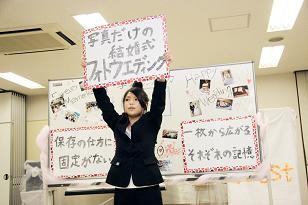 写真だけの
結婚式
フォトウエディング
保存の仕方に
固定がない
一枚から広がる
それぞれの記憶